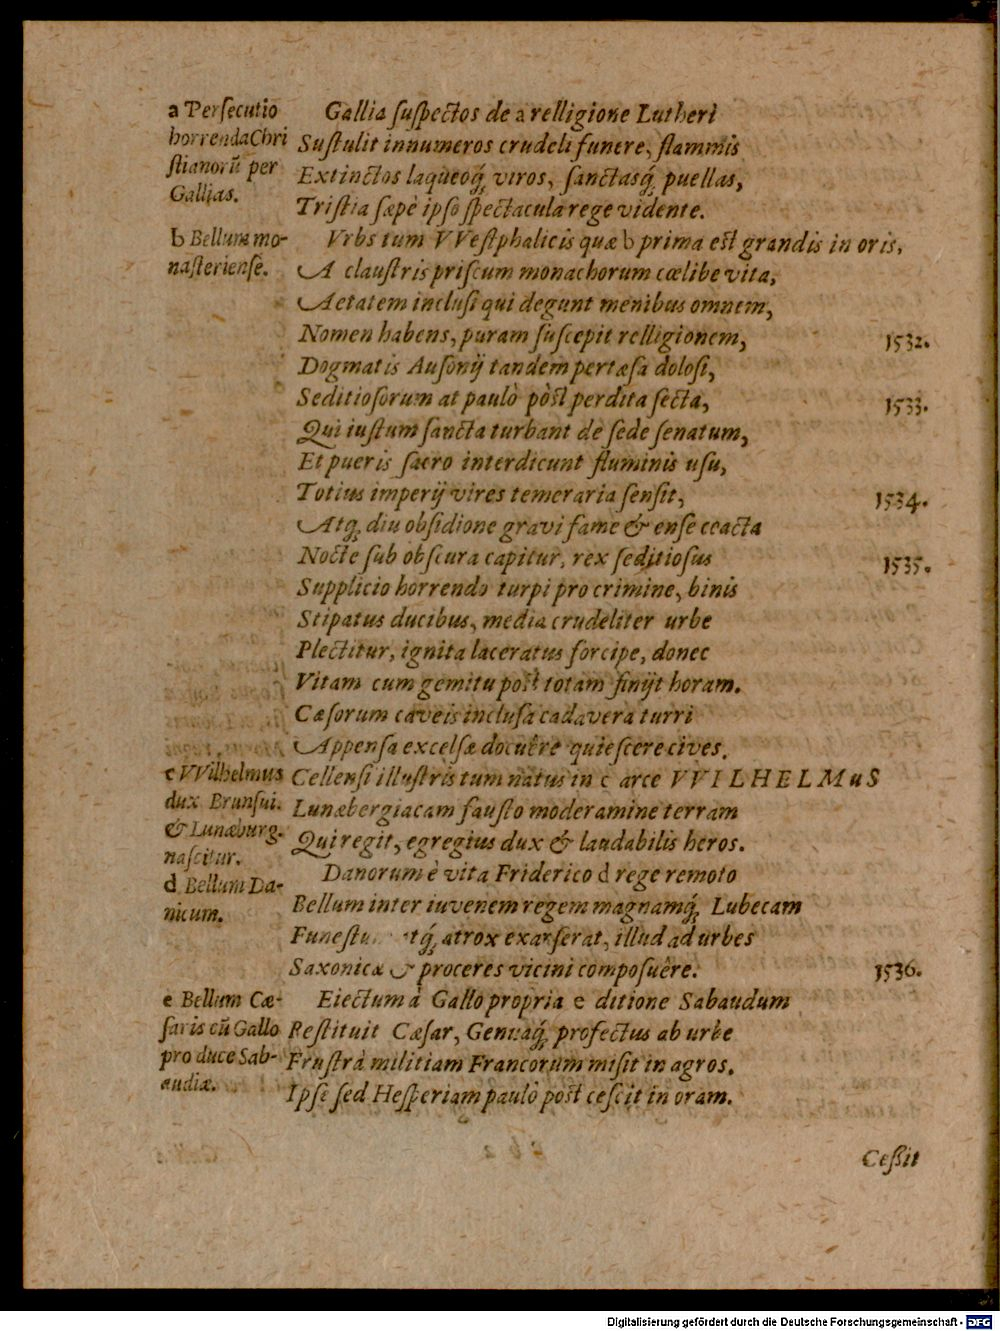 a Persecutio
horrenda Chri
stianorū per
Gallias.
Gallia suspectos de a relligione Lutheri
Sustulit innumeros crudeli funere, flammis
Extinctos laqueoq́; viros, sanctasq́; puellas,
Tristia sæpè ipso spectacula rege vidente.
b Bellum mo-
nasteriense.
Vrbs tum VVestphalicis quæ b prima est grandis in oris,
A claustris priscum monachorum cælibe vita,
Aetatem inclusi qui degunt menibus omnem,
Nomen habens, puram suscepit relligionem, 1532.
Dogmatis Ausonij tandem pertæsa dolosi,
Seditiosorum at paulò pòst perdita secta, 1533.
Qui iustum sancta turbant de sede senatum,
Et pueris sacro interdicunt fluminis usu,
Totius imperij vires temeraria sensit, 1534.
Atq́; diu obsidione gravi fame & ense coacta
Nocte sub obscura capitur, rex seditiosus 1535.
Supplicio horrendo turpi pro crimine, binis
Stipatus ducibus, media crudeliter urbe
Plectitur, ignita laceratus forcipe, donec
Vitam cum gemitu post totam finijt horam.
Cæsorum caveis inclusa cadavera turri
Appensa excelsæ docuêre quiescere cives.
c VVilhelmus
dux Brunsui.
& Lunæburg.
nascitur.
Cellensi illustris tum natus in c arce VVILHELMuS
Lunæbergiacam fausto moderamine terram
Qui regit, egregius dux & laudabilis heros.
d Bellum Da-
nicum.
Danorum è vita Friderico d rege remoto
Bellum inter iuvenem regem magnamq́; Lubecam
Funestu tq́; atrox exarserat, illud ad urbes
Saxonicæ & proceres vicini composuêre. 1536.
e Bellum Cæ-
saris cū Gallo
pro duce Sab-
audiæ.
Eiectum à Gallo propria e ditione Sabaudum
Restituit Cæsar, Genuaq́; profectus ab urbe
Frustrà militiam Francorum misit in agros.
Ipse sed Hesperiam paulò pòst cescit in oram.
Ceßit
Digitalisierung gefördert durch die Deutsche Forschungsgemeinschaft - DFG